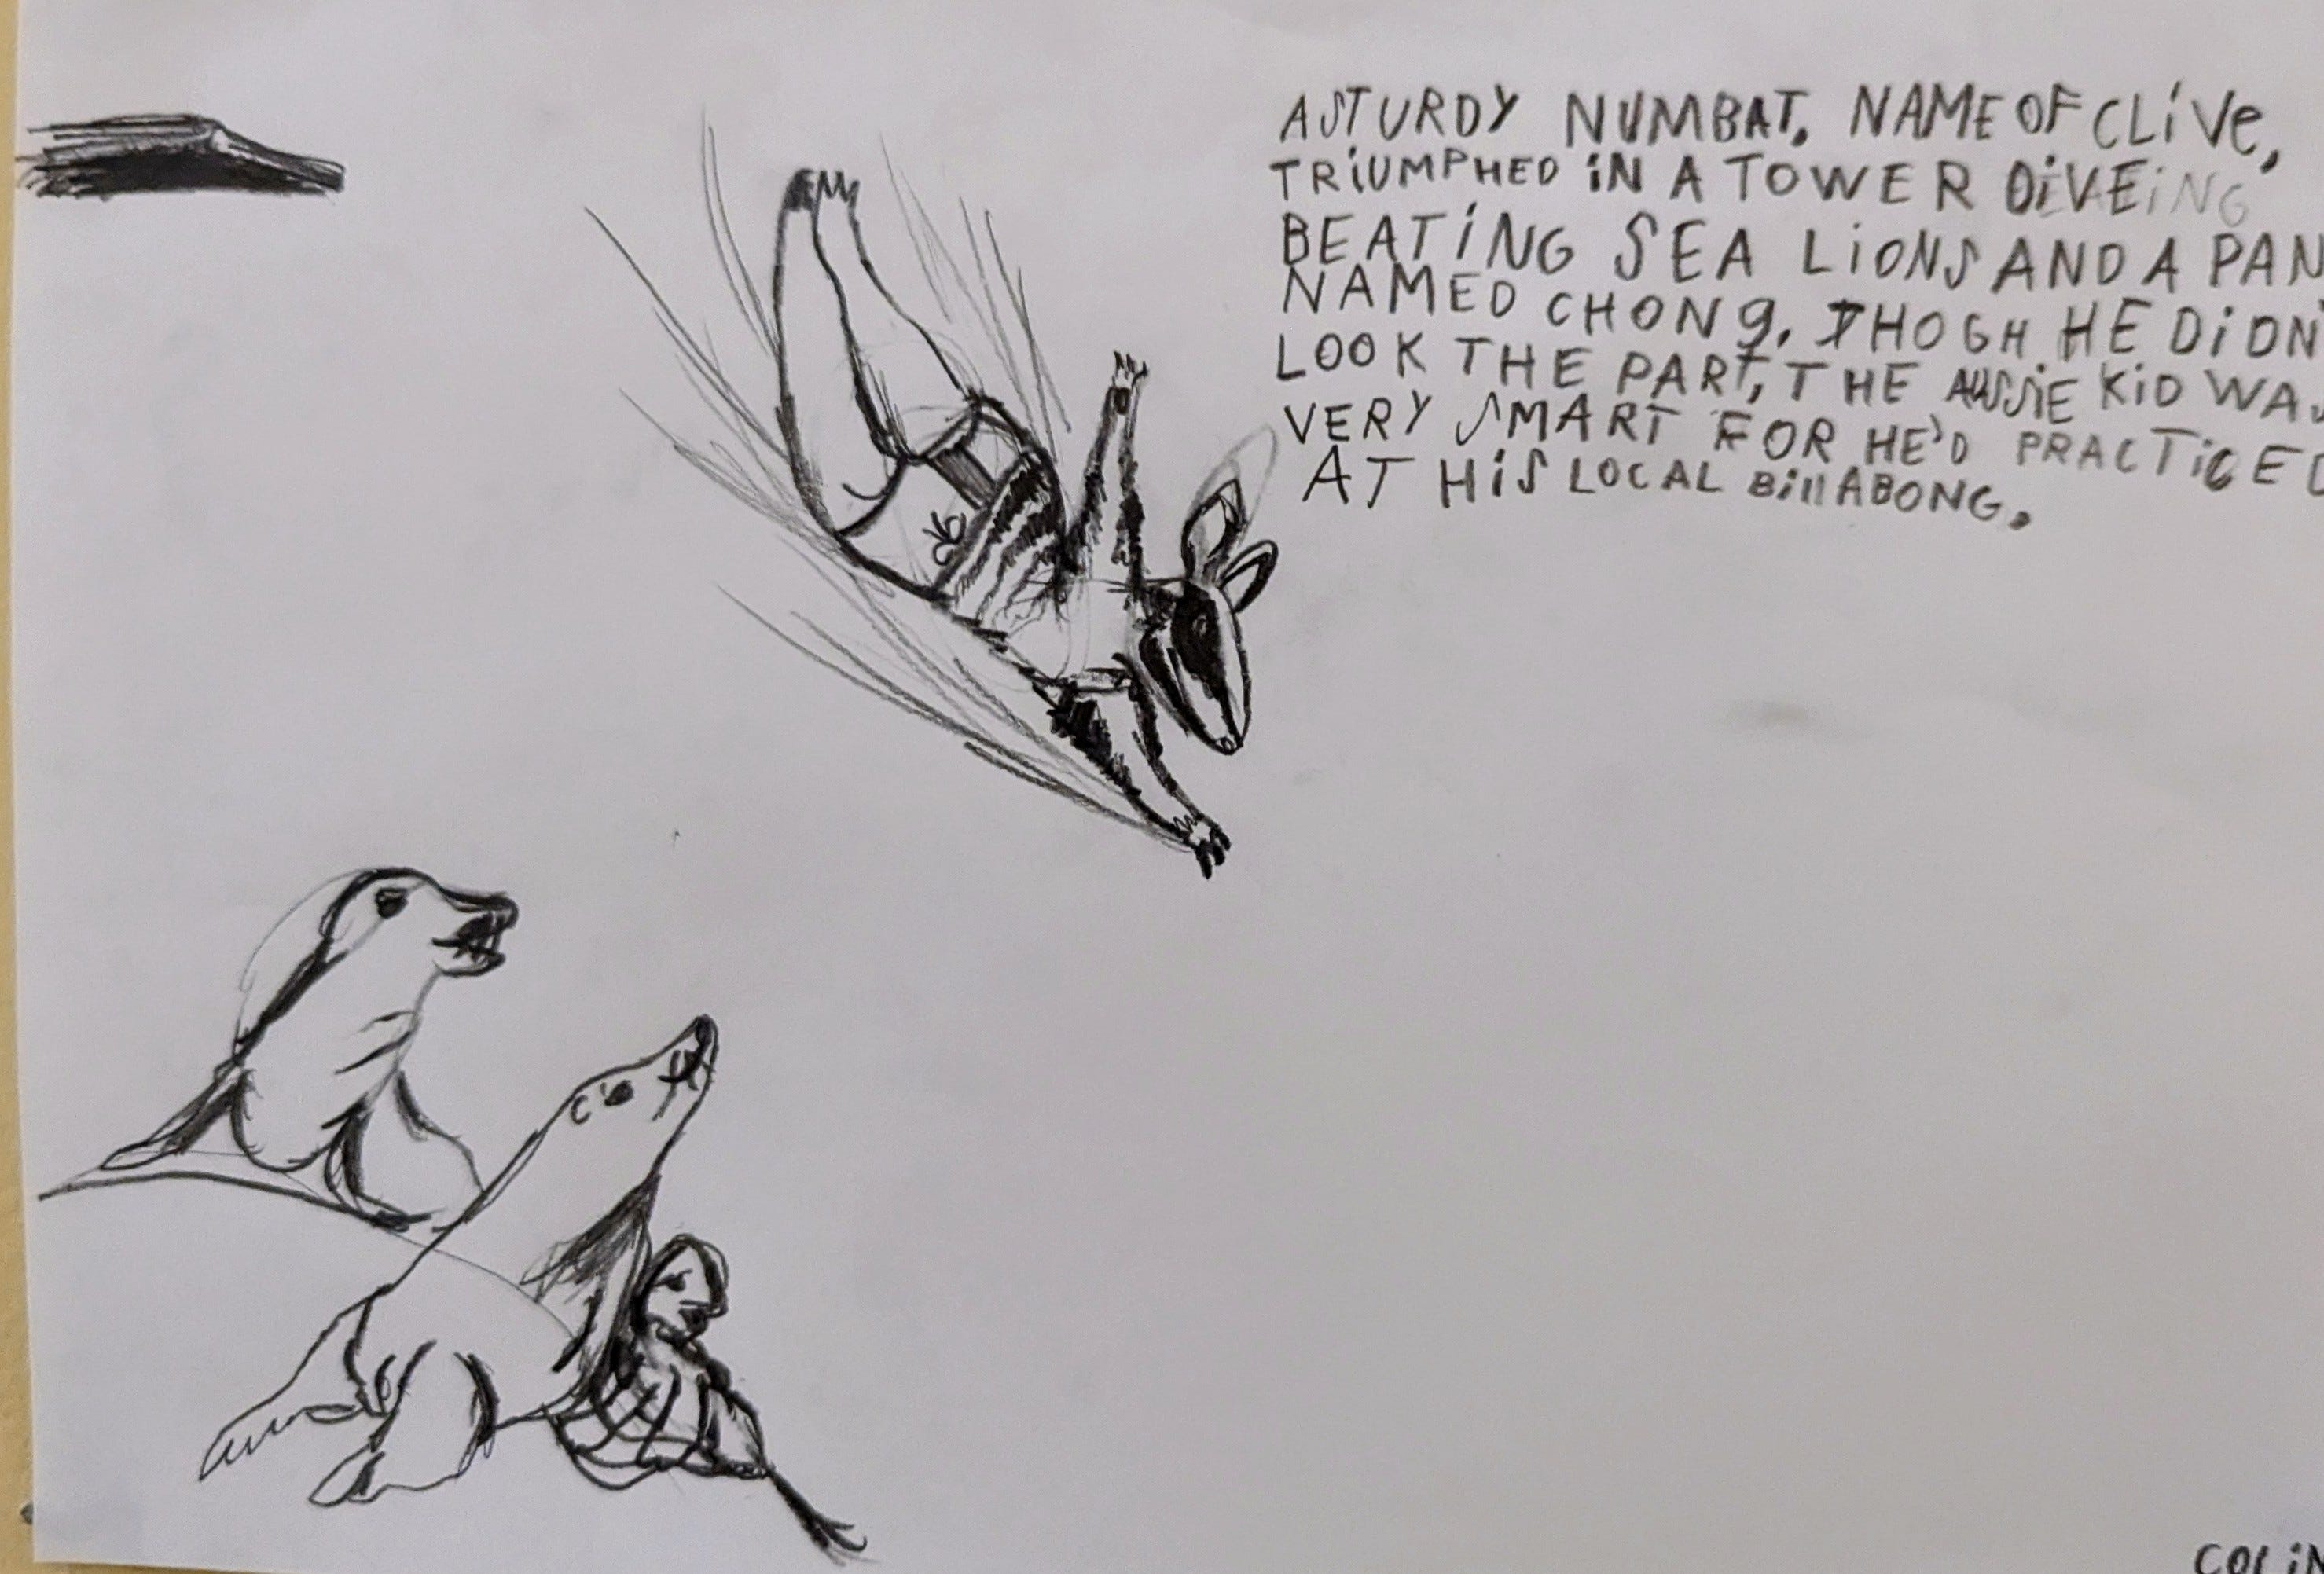 A STURDY NUMBAT, NAME OF CLiVe,
TRiUMPHED iN A TOWER DiVEiNG
BEATiNG SEA LiONS AND A PAN
NAMED CHONG, THOGH HE DiDN'
LOOK THE PART, THE AUSSiE KiD WAS
VERY SMART FOR HE'D PRACTiCED
AT HiS LOCAL BillABONG.
COLiN